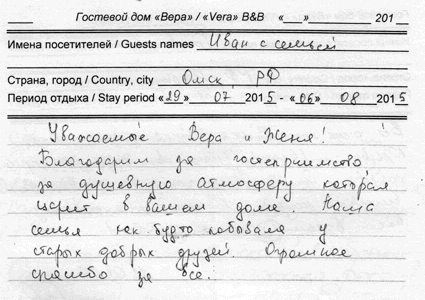 Гостевой дом «Вера» / «Vera» B&B «__» ________ 201__
Имена посетителей / Guests names Иван с семьей
Страна, город / Country, city Омск, РФ
Период отдыха / Stay period «29» 07 2015 - «06» 08 2015
Уважаемые Вера и Женя!
Благодарим за гостеприимство
за душевную атмосферу которая
царит в вашем доме. Наша
семья как будто побывала у
старых добрых друзей. Огромное
спасибо за все.